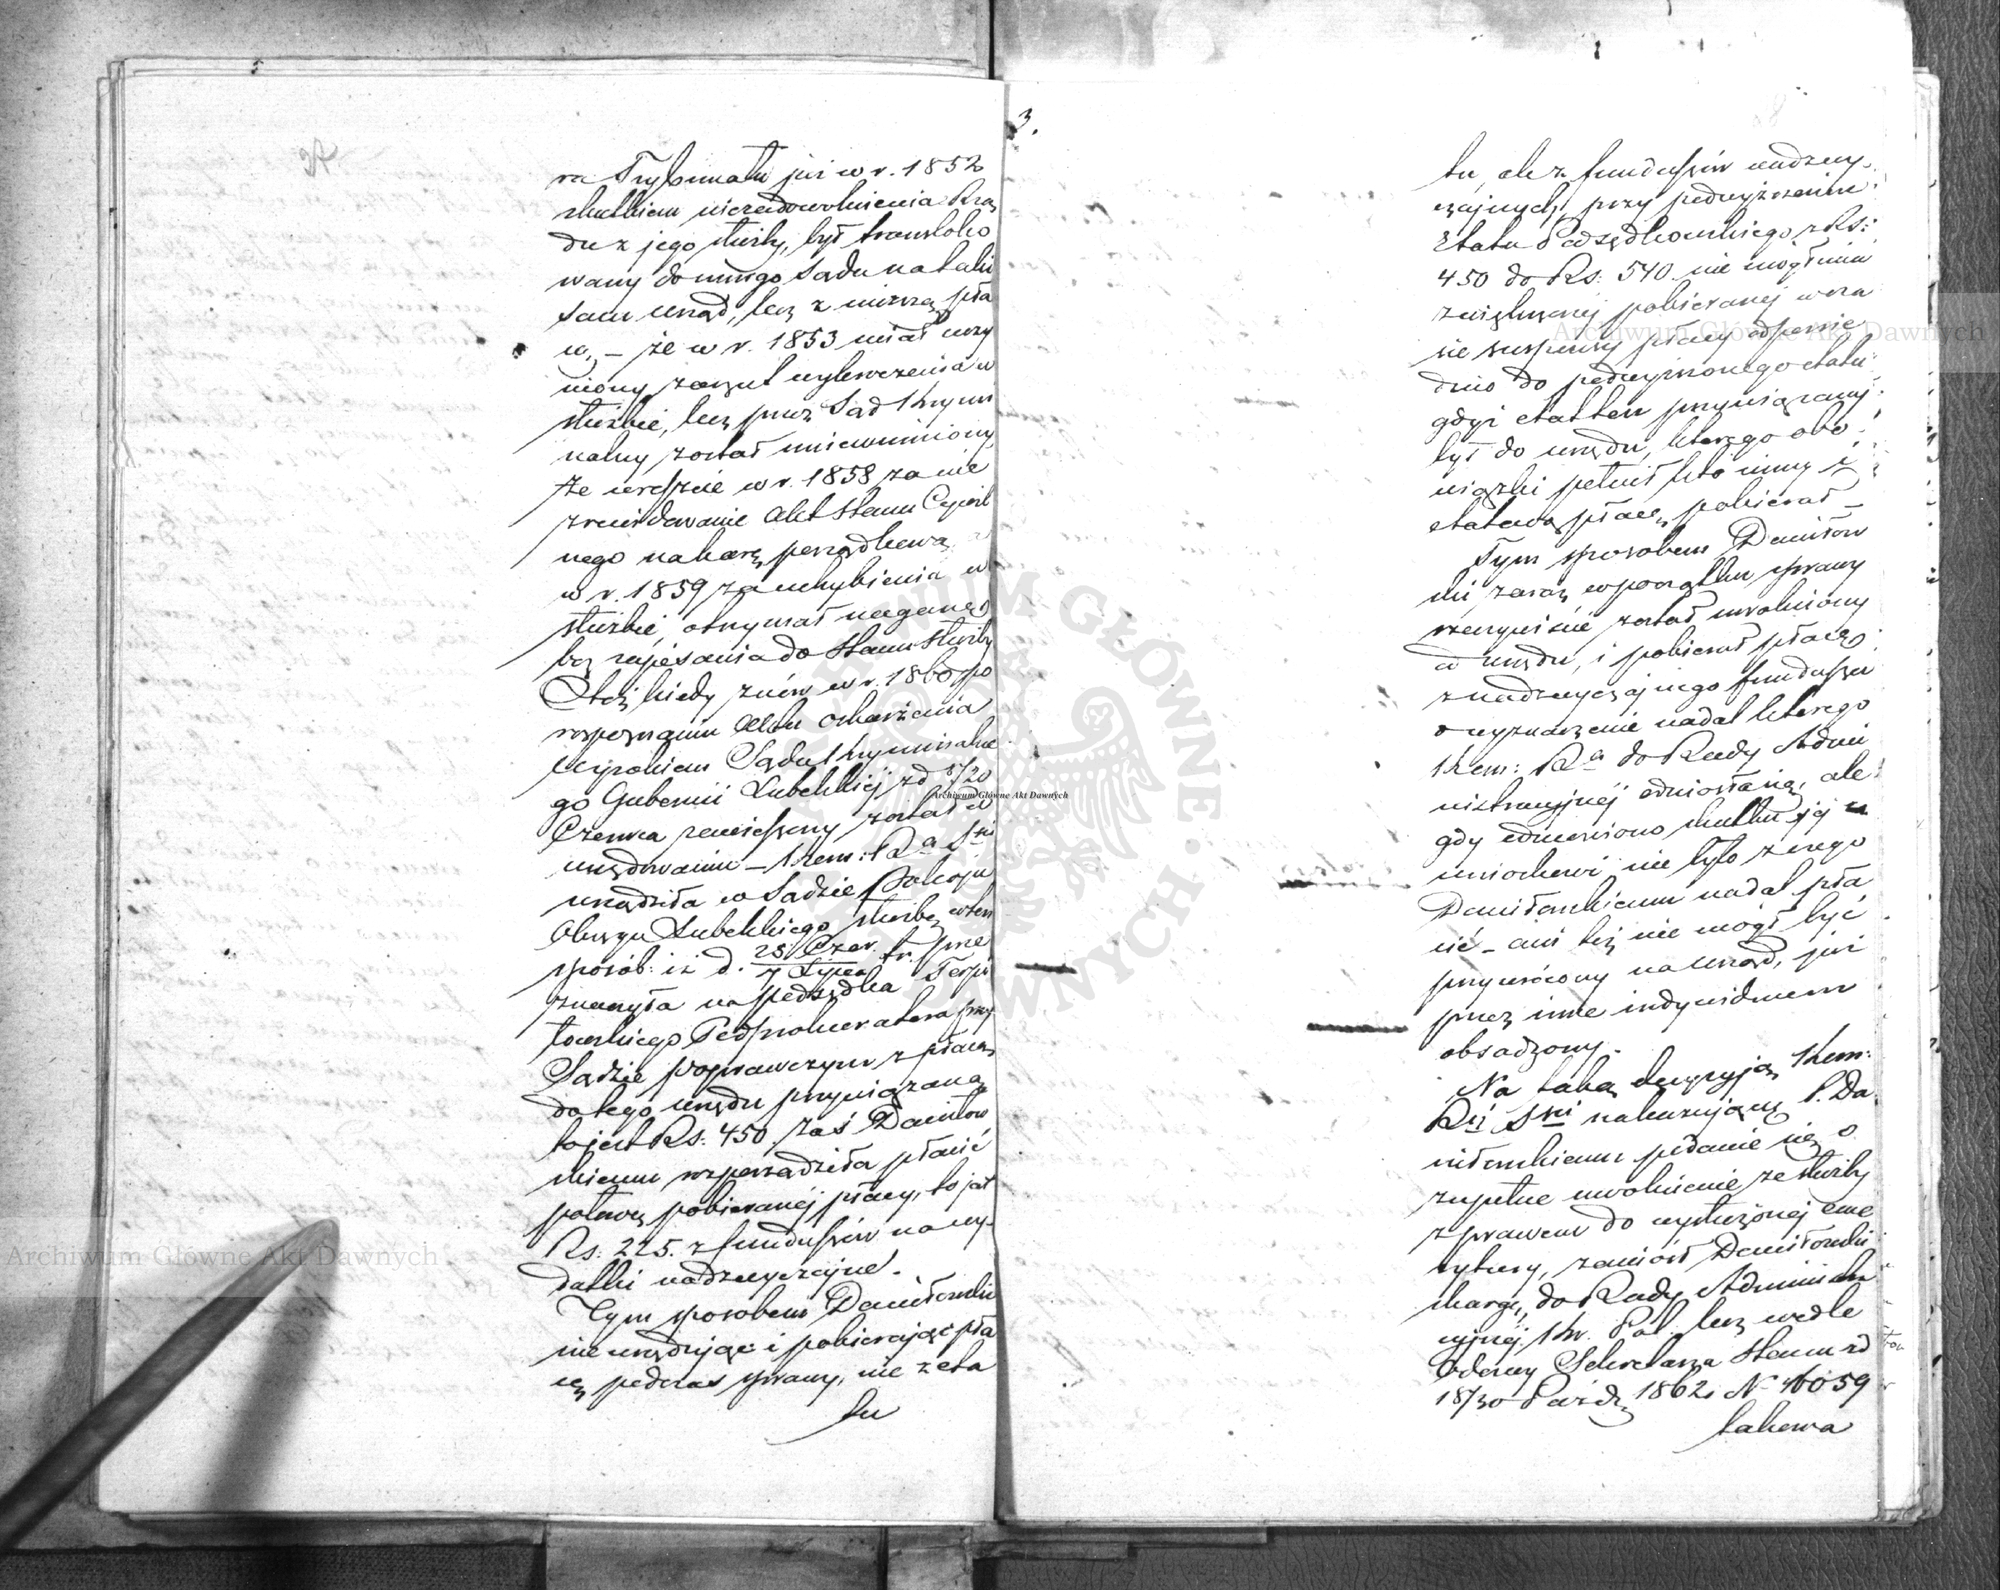 ra Trybunału już w r. 1852
skutkiem niezadowolnienia Rzą
du z jego służby, był transloko
wany do innego Sądu na taki
sam urząd, lecz z niższą pła
cą, – że w r. 1853 miał uczy
niony zarzut wykroczenia w
służbie, lecz przez Sąd Krymi
nalny został uniewinniony,
że wreszcie w r. 1858 za nie
zrewidowanie Akt Stanu Cywil
nego na karę porządkową, a
w r. 1859 za uchybienia w
służbie, otrzymał naganę,
bez wpisania do Stanu służby
Otóż kiedy znów w r. 1860 po
rozpoznaniu Aktu oskarżenia
Wyrokiem Sądu Kryminalne
go Gubernii Lubelskiej z d 8/20
Czerwca zawieszony został w
urzędowaniu – Kom: Rª Sⁿⁱ
urządziła w Sądzie Pokoju
Okręgu Lubelskiego służbę w ten
sposób: iż d. 25 Czer./7 Lipca t.r. prze
znaczyła na podsędka
Podprokuratora przy
Sądzie poprawczym z płacą
do tego urzędu przywiązaną
to jest Rs: 450. zaś Daniłow
skiemu rozporządziła płacić
połowę pobieranéj płacy, to jest
Rs: 225. z funduszów na wy-
datki nadzwyczajne.
Tym sposobem Daniłowski
nie urzędując i pobierając pła
cę podczas sprawy, nie z eta
tu
3.
tu, ale z funduszów nadzwy-
czajnych, przy podwyższeniu
Etatu Podsędkowskiego z Rs:
450 do Rs: 540. nie mógł mieć
zwiększonéj pobieranéj w cza
sie suspensy płacy odpowie
dnio do podwyższonego etatu
gdyż etat ten przywiązany
był do urzędu, którego obo
wiązki pełnił kto inny i
etatową płacę pobierał –
Tym sposobem Daniłow
ski zaraz w początku sprawy
rzeczywiście został uwolniony
od urzędu, i pobierał płacę
z nadzwyczajnego funduszu
o wyznaczenie nadal którego
Kom: Rª do Rady Admi
nistracyjnéj odniosła się, ale
gdy odmówiono skutku jéj
wnioskowi nie było z czego
Daniłowskiemu nadal pła
cić – ani też nie mógł być
przywrócony na urząd, już
przez inne indywiduum
obsadzony.
Na taką decyzyją Kom:
Rⁱⁱ Sⁿⁱ nakazującą P. Da
niłowskiemu podanie się o
zupełne uwolnienie ze służby
z prawem do wysłużonéj eme
rytury, zaniósł Daniłowski
skargę, do Rady Administra
cyjnéj Kr. Pol. lecz wedle
Odezwy Sekretarza Stanu z d
18/30 Paźdz 1862 N° 16059
takowa